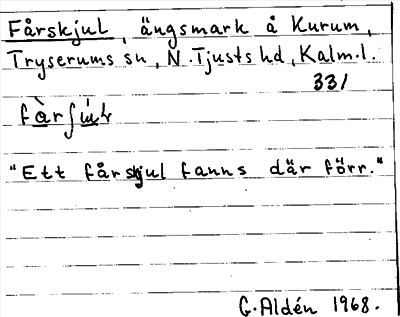 Fårskjul, ängsmark å Kurum,
Tryserums sn, N. Tjusts hd, Kalm. l.
331
"Ett fårskjul fanns där förr."
G. Aldén 1968.